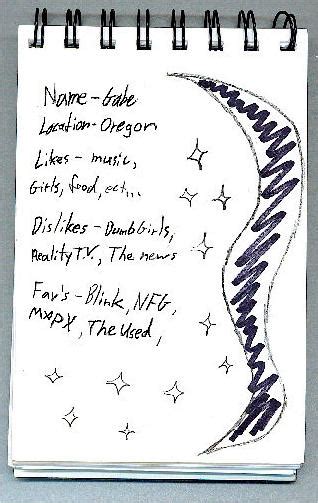 Name - Gabe
Location - Oregon
Likes - music,
Girls, food, ect...
Dislikes - Dumb Girls,
Reality T.V., The news
Fav's - Blink, NFG,
MXPX, The Used,